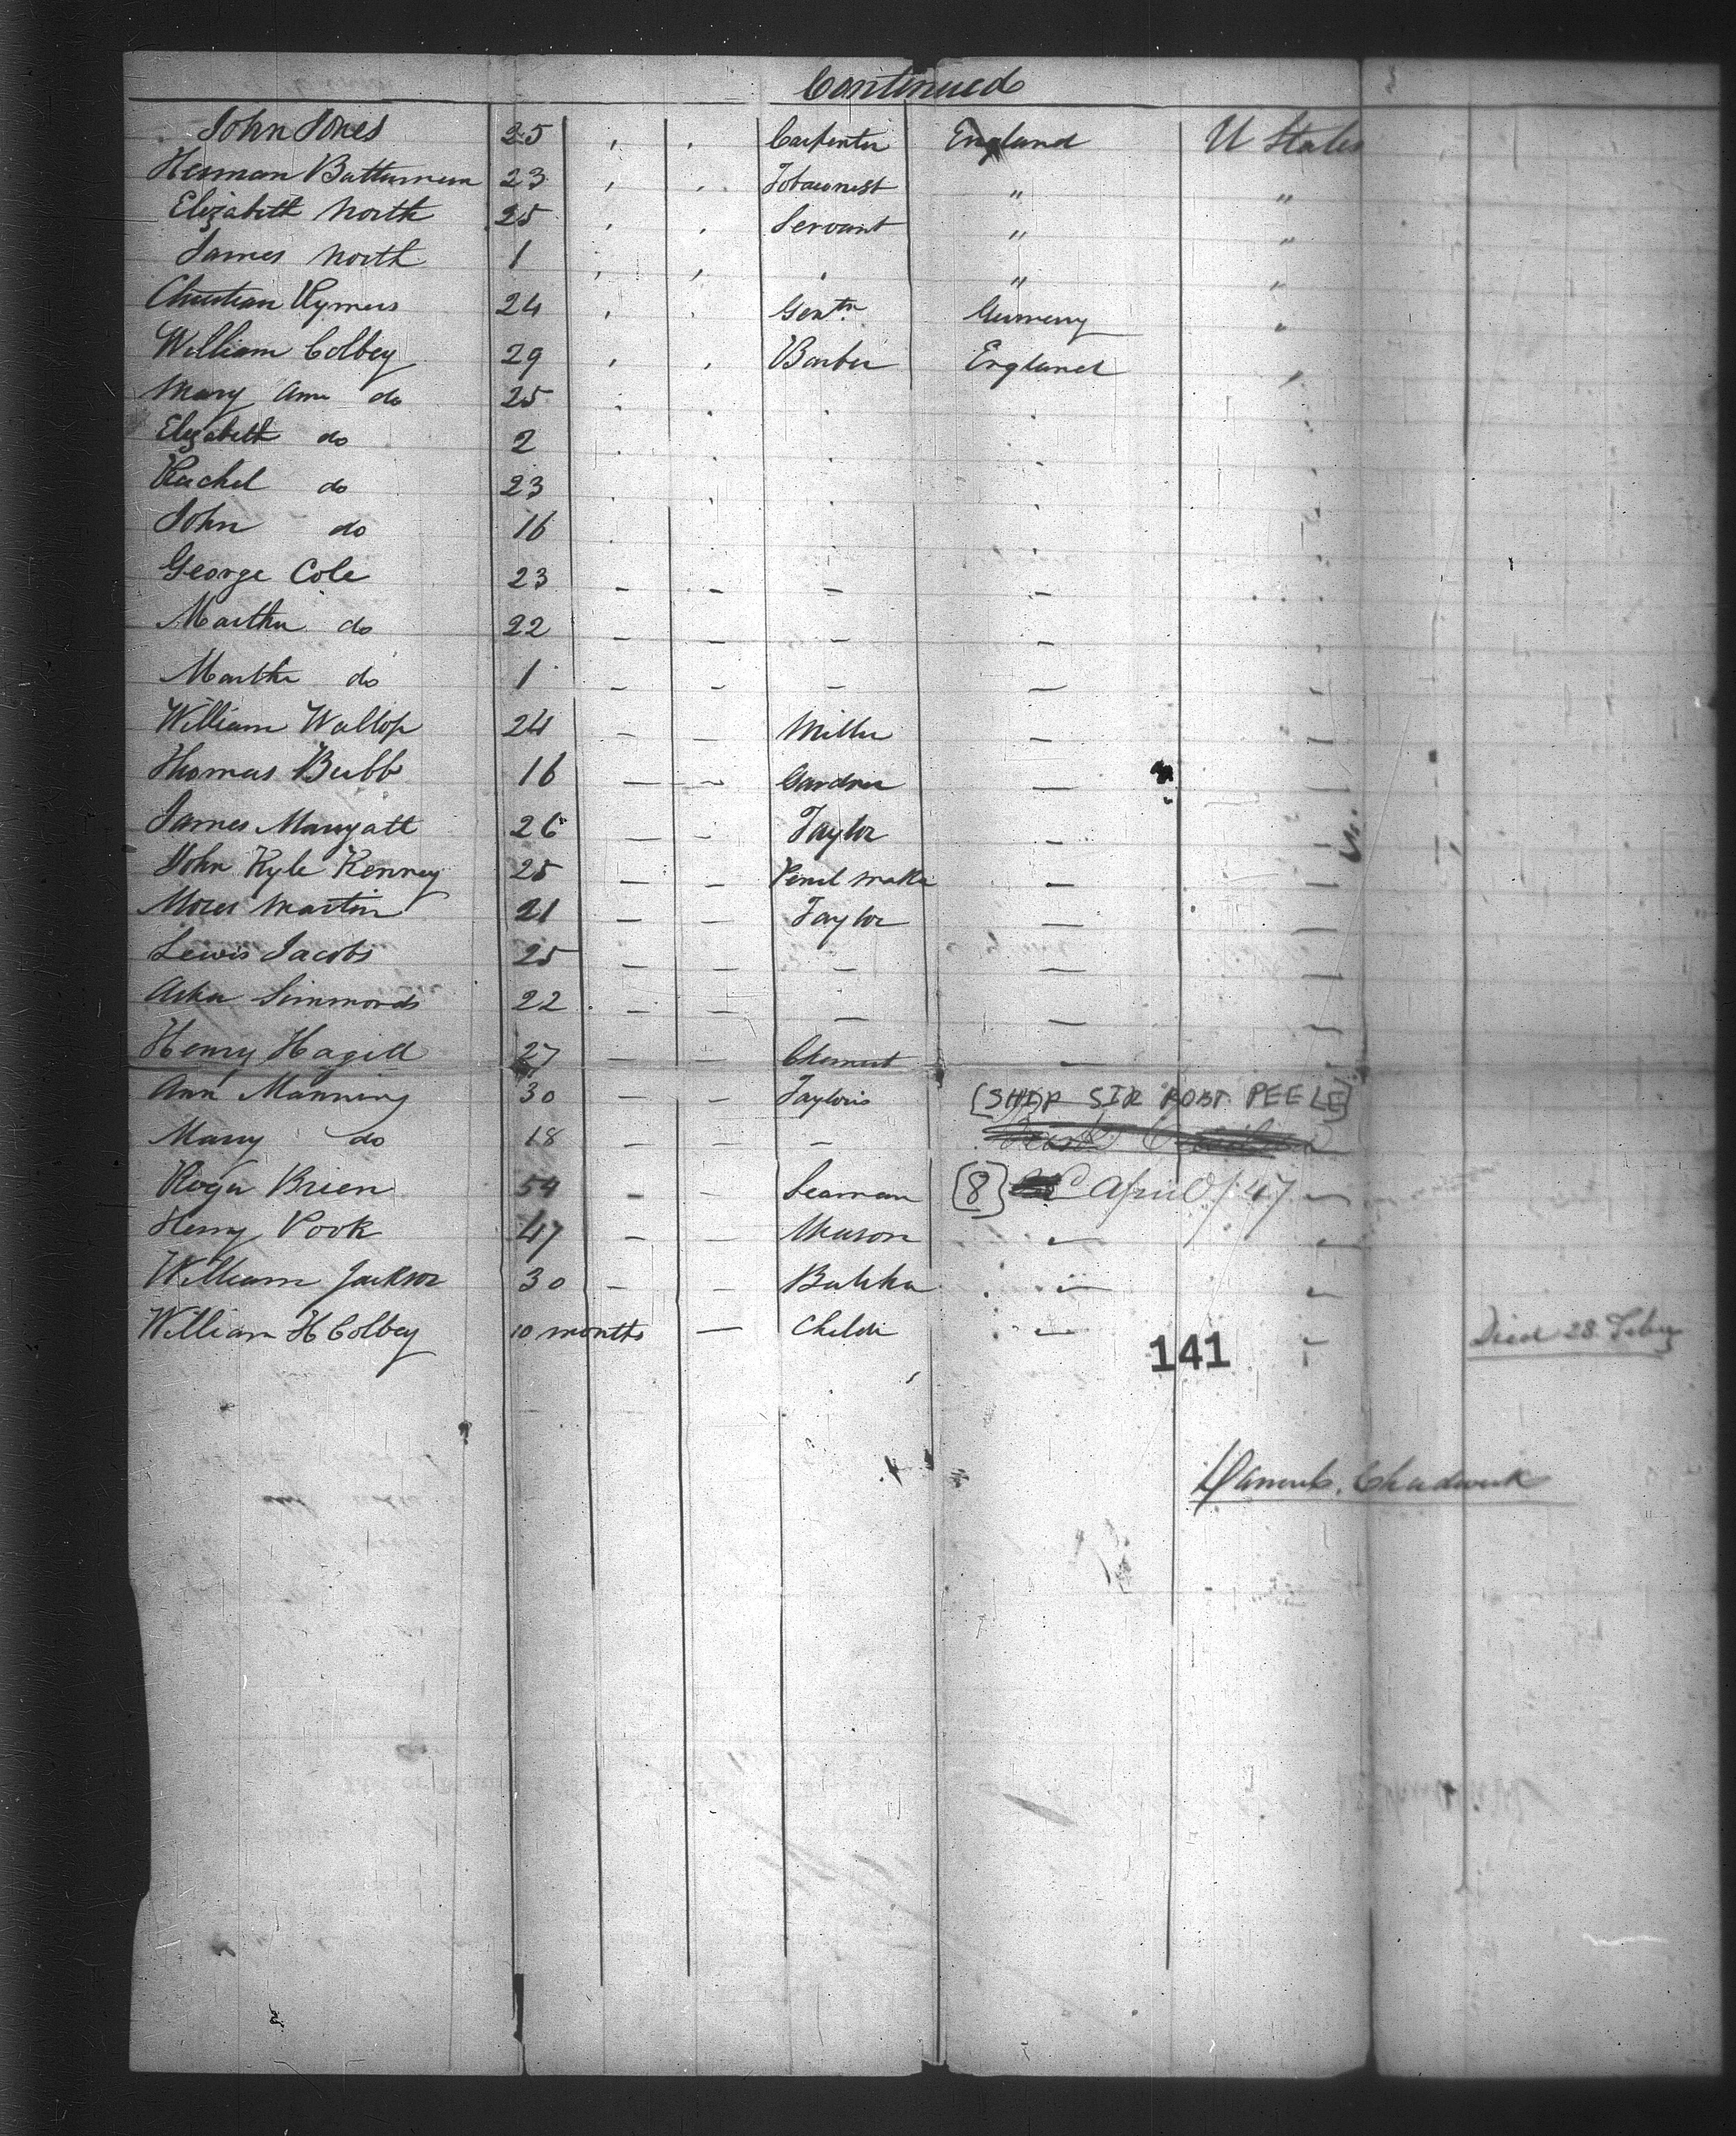 Continued
John Jones 25 , , Carpenter England U States
Herman Battumen 23 , , Tobaconist " "
Elizabeth North 25 , , Servant " "
James North 1 , , , " "
Christian Rymers 24 , , Gentn Germeny "
William Colbey 29 , , Barber England "
Mary Ann do 25
Elizabeth do 2
Rachel do 23
John do 16
George Cole 23 - - - -
Martha do 22 - - - - -
Martha do 1 - - - - -
William Wallop 24 - - Miller - -
Thomas Bubb 16 - - Gardner - -
James Maryatt 26 - - Taylor - -
John Kyle Kenney 25 - - Pencil Make - -
Moses Martin 21 - - Taylor - -
Lewis Jacobs 25 - - - - -
Simmonds 22 - - - - -
Henry Hagill 27 - - Chemist - -
Ann Manning 30 - - Tayloris [SHIP SIR ROBT PEELE]
Mary do 18 - - -
Roger Brien 54 - - Seaman [8] April / 47 -
Henry Pook 47 - - Mason - -
William Jackson 30 - - -
William H Colbey 10 months - Childe - - Died 28 Feby
141
Chadwick